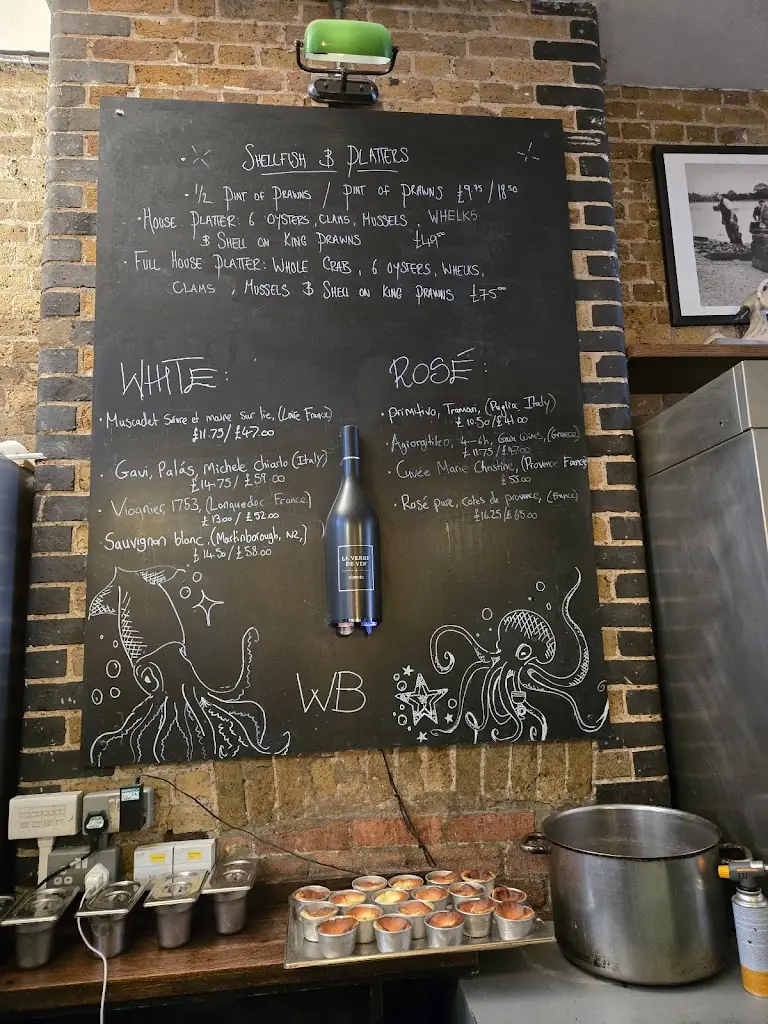 SHELLFISH & PLATTERS
· 1/2 PINT OF PRAWNS / PINT OF PRAWNS £9.75 / 18.50
· HOUSE PLATTER: 6 OYSTERS, CLAMS, MUSSELS, WHELKS
& SHELL ON KING PRAWNS £49.00
· FULL HOUSE PLATTER: WHOLE CRAB, 6 OYSTERS, WHELKS,
CLAMS, MUSSELS & SHELL ON KING PRAWNS £75.00
WHITE:
· Muscadet Sèvre et maine sur lie, (Loire France)
£11.75/£47.00
· Gavi, Palás, Michele chiarlo (Italy)
£14.75/£59.00
· Viognier, 1753, (Languedoc France)
£13.00/£52.00
Sauvignon blanc, (Martinborough, NZ,)
£14.50/£58.00
ROSÉ:
· primitivo, Tramari, (Puglia Italy)
£10.50/£41.00
· Agiorgitiko, 4-6h, Gaia wines, (Greece)
£11.75/£47.00
· Cuvée Marie Christine, (Provence France)
£55.00
· Rosé pure, cotes de provence, (france)
£16.25/£65.00
LE VERRE
DE VIN
classic
WB